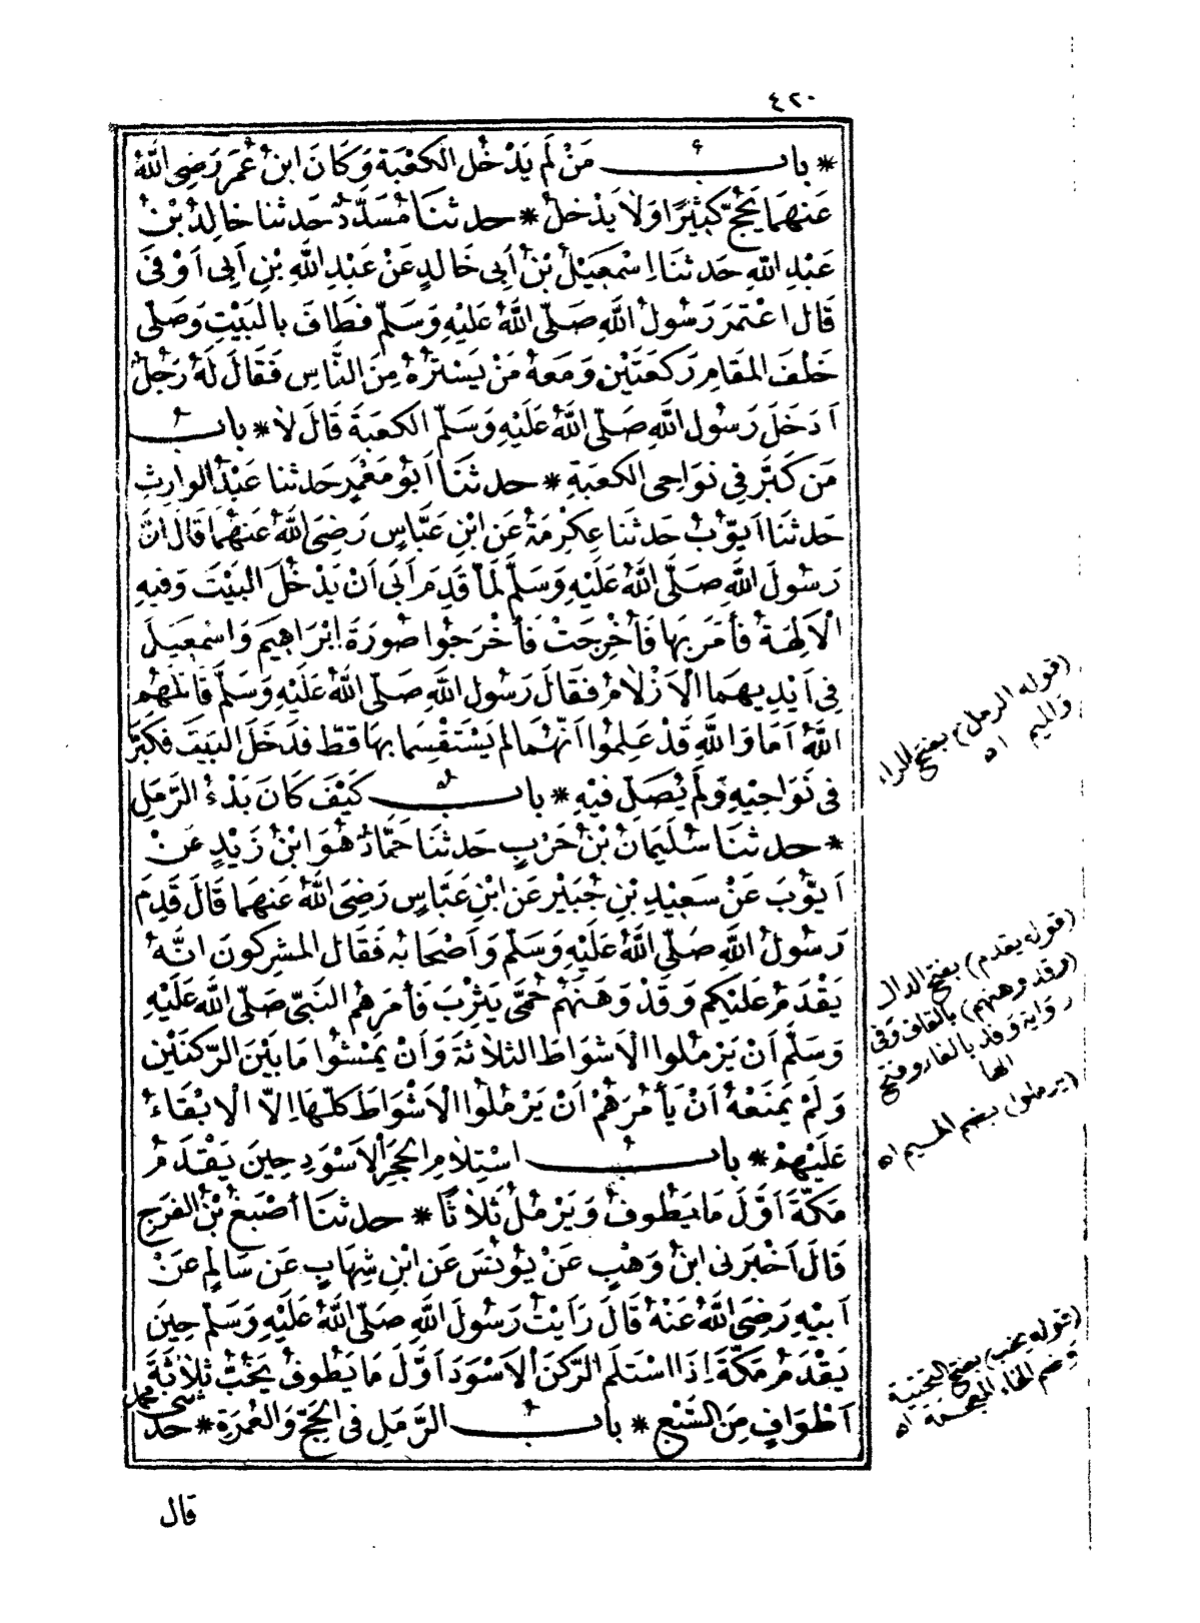 ٤٢٠
* باب من لم يدخل الكعبة وكان ابن عمر رضي الله
عنهما يحج كثيرا ولا يدخل * حدثنا مسدد حدثنا خالد بن
عبد الله حدثنا اسمعيل بن أبي خالد عن عبد الله بن ابي اوفى
قال اعتمر رسول الله صلى الله عليه وسلم فطاف بالبيت وصلى
خلف المقام ركعتين ومعه من يستره من الناس فقال له رجل
ادخل رسول الله صلى الله عليه وسلم الكعبة قال لا * باب
من كبر في نواحي الكعبة * حدثنا ابو معمر حدثنا عبد الوارث
حدثنا ايوب حدثنا عكرمة عن ابن عباس رضي الله عنهما قال ان
رسول الله صلى الله عليه وسلم لما قدم ابى ان يدخل البيت وفيه
الآلهة فأمر بها فأخرجت فأخرجوا صورة ابراهيم واسمعيل
في ايديهما الازلام فقال رسول الله صلى الله عليه وسلم قاتلهم
الله اما والله قد علموا انهما لم يستقسما بها قط فدخل البيت فكبر
في نواحيه ولم يصل فيه * باب كيف كان بدء الرمل
* حدثنا سليمان بن حرب حدثنا حماد هو ابن زيد عن
ايوب عن سعيد بن جبير عن ابن عباس رضي الله عنهما قال قدم
رسول الله صلى الله عليه وسلم واصحابه فقال المشركون انه
يقدم عليكم وقد وهنهم حمى يثرب فأمرهم النبي صلى الله عليه
وسلم ان يرملوا الاشواط الثلاثة وان يمشوا ما بين الركنين
ولم يمنعه ان يأمرهم ان يرملوا الاشواط كلها الا الابقاء
عليهم * باب استلام الحجر الاسود حين يقدم
مكة اول ما يطوف ويرمل ثلاثا * حدثنا أصبغ بن الفرج
قال اخبرني ابن وهب عن يونس عن ابن شهاب عن سالم عن
ابيه رضي الله عنه قال رايت رسول الله صلى الله عليه وسلم حين
يقدم مكة اذا استلم الركن الاسود اول ما يطوف يخب ثلاثة
اطواف من السبع * باب الرمل في الحج والعمرة * حد
ثني محمد
قال
(قوله الرمل) بفتح الراء
والميم اه
(قوله يقدم) بفتح الدال
(وقد وهنهم) بالقاف وفي
رواية وفد بالفاء وفتح
الها
(يرملوا) بضم الميم اه
(قوله يخب) بفتح التحتية
وضم الخاء المعجمة اه